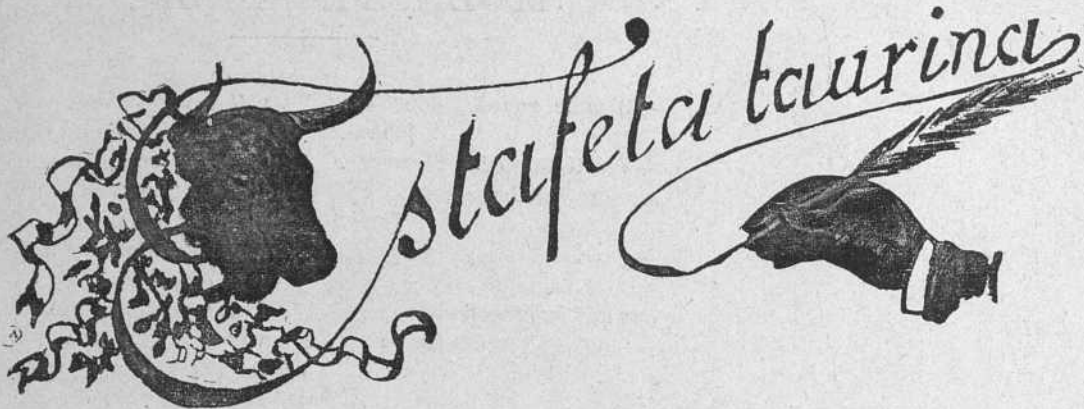 Estafeta taurina